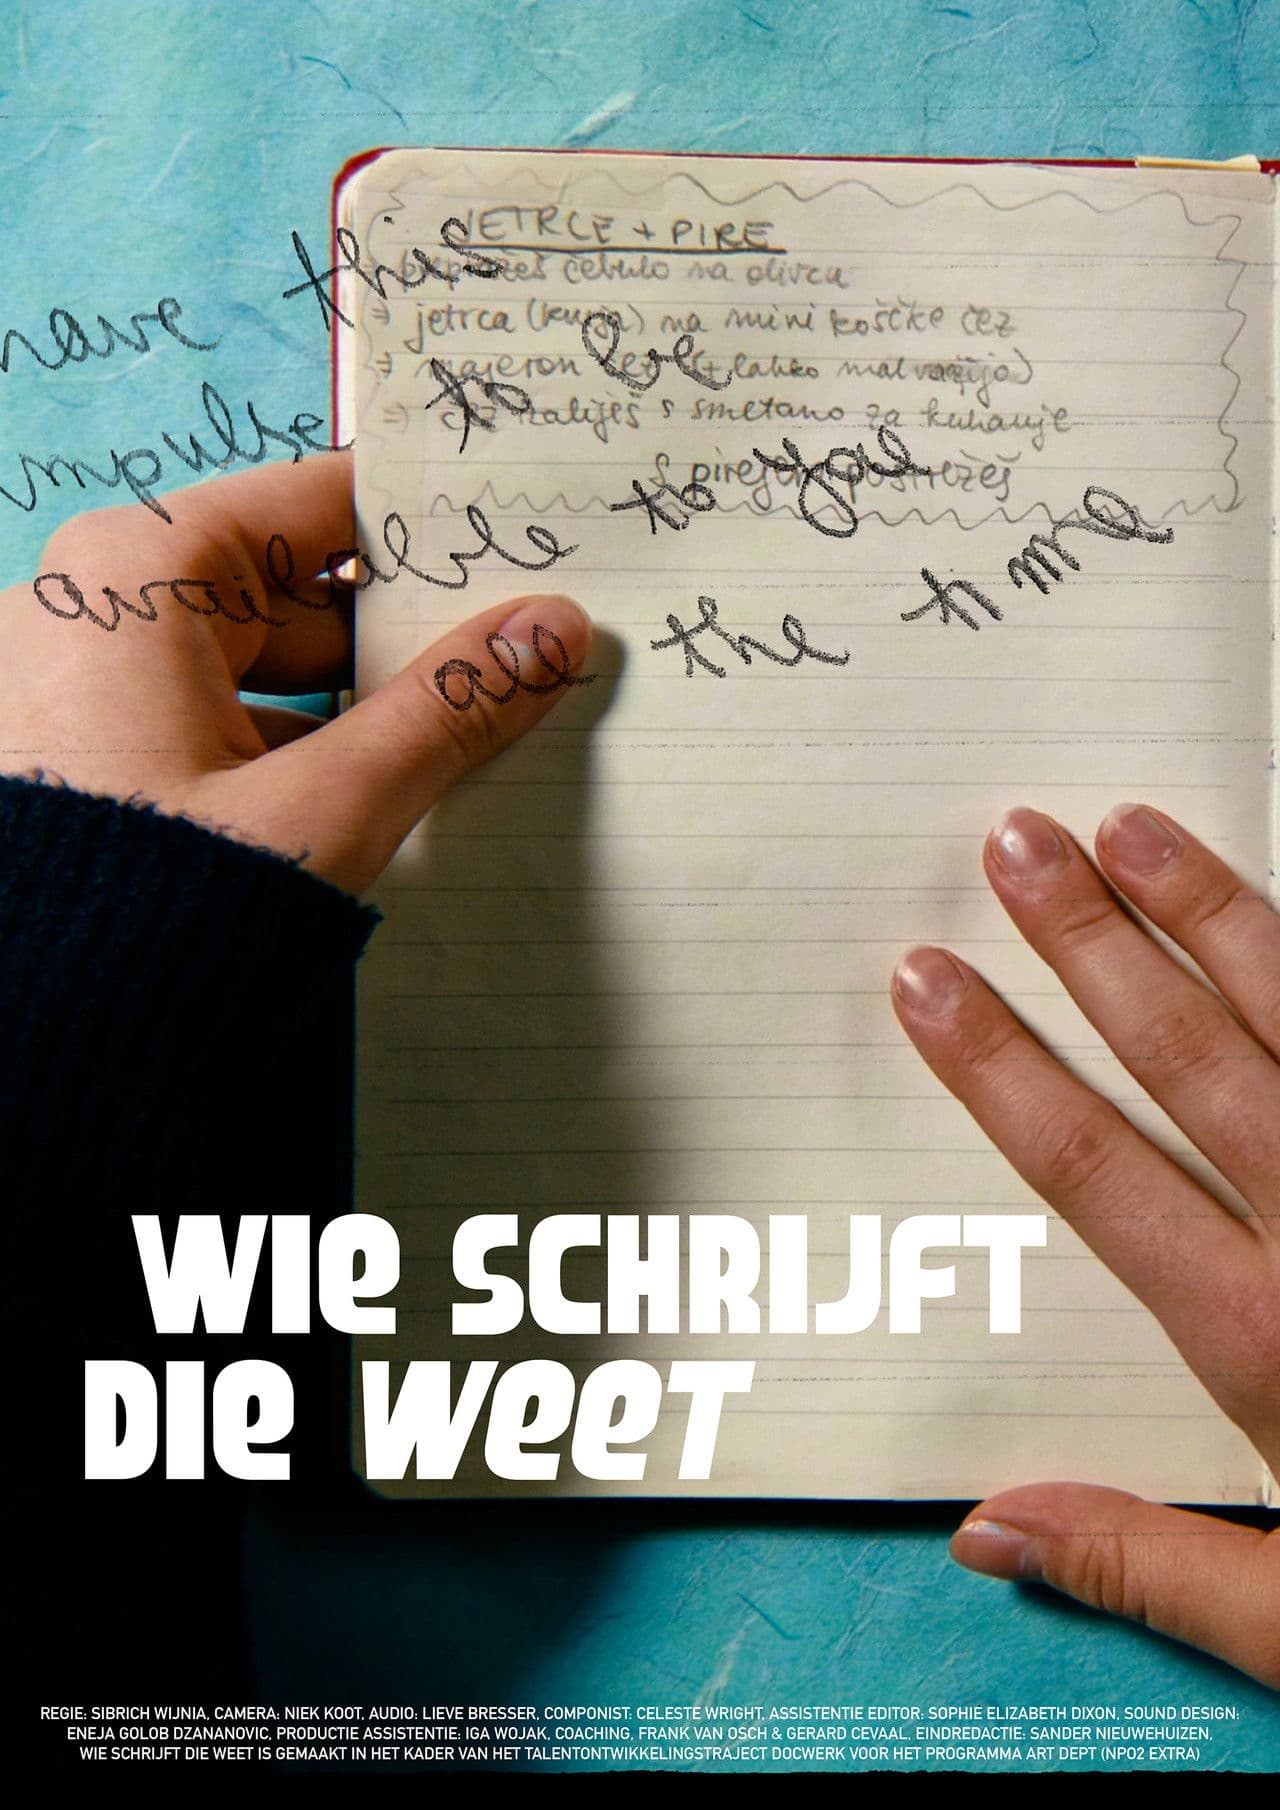 JETRCE + PIRE
prepražeš čebulo na olivcu
⇒ jetrca (kurja) na mini koščke čez
⇒ majeron čez (+ lahko malvazijo)
⇒ čez zaliješ s smetano za kuhanje
S pirejem postrežeš
have this
impulse to be
available to you
all the time
WIE SCHRIJFT
DIE WEET
REGIE: SIBRICH WIJNIA, CAMERA: NIEK KOOT, AUDIO: LIEVE BRESSER, COMPONIST: CELESTE WRIGHT, ASSISTENTIE EDITOR: SOPHIE ELIZABETH DIXON, SOUND DESIGN:
ENEJA GOLOB DZANANOVIC, PRODUCTIE ASSISTENTIE: IGA WOJAK, COACHING, FRANK VAN OSCH & GERARD CEVAAL, EINDREDACTIE: SANDER NIEUWEHUIZEN,
WIE SCHRIJFT DIE WEET IS GEMAAKT IN HET KADER VAN HET TALENTONTWIKKELINGSTRAJECT DOCWERK VOOR HET PROGRAMMA ART DEPT (NPO2 EXTRA)